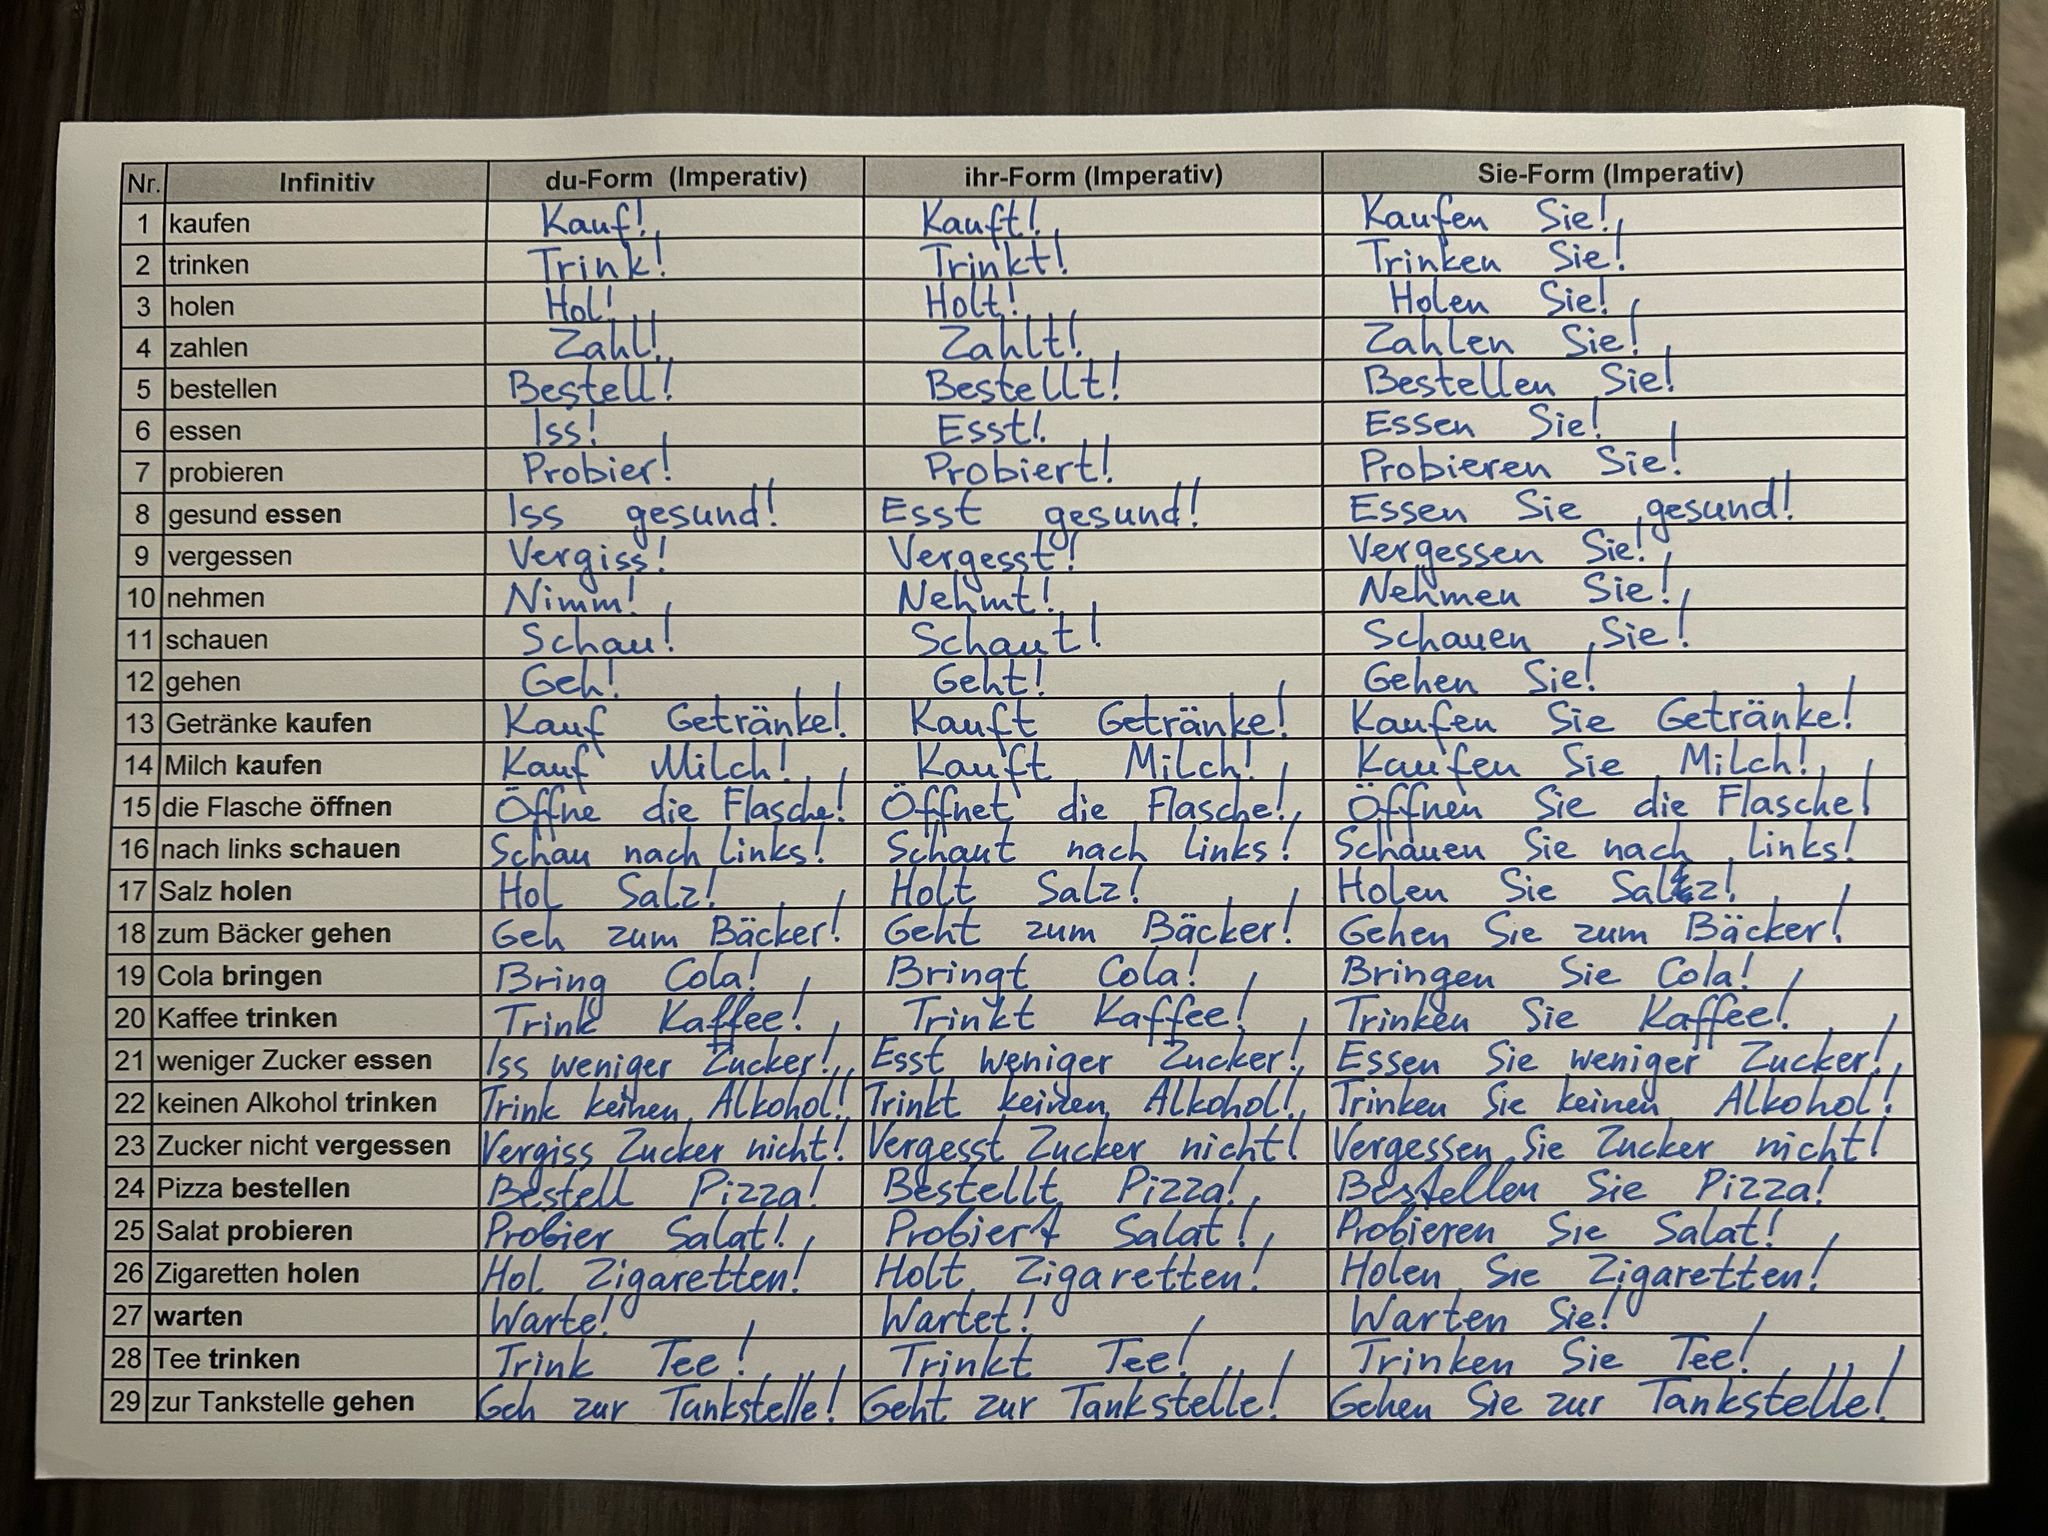 Nr. Infinitiv du-Form (Imperativ) ihr-Form (Imperativ) Sie-Form (Imperativ)
1 kaufen Kauf! Kauft! Kaufen Sie!
2 trinken Trink! Trinkt! Trinken Sie!
3 holen Hol! Holt! Holen Sie!
4 zahlen Zahl! Zahlt! Zahlen Sie!
5 bestellen Bestell! Bestellt! Bestellen Sie!
6 essen Iss! Esst! Essen Sie!
7 probieren Probier! Probiert! Probieren Sie!
8 gesund essen Iss gesund! Esst gesund! Essen Sie gesund!
9 vergessen Vergiss! Vergesst! Vergessen Sie!
10 nehmen Nimm! Nehmt! Nehmen Sie!
11 schauen Schau! Schaut! Schauen Sie!
12 gehen Geh! Geht! Gehen Sie!
13 Getränke kaufen Kauf Getränke! Kauft Getränke! Kaufen Sie Getränke!
14 Milch kaufen Kauf Milch! Kauft Milch! Kaufen Sie Milch!
15 die Flasche öffnen Öffne die Flasche! Öffnet die Flasche! Öffnen Sie die Flasche!
16 nach links schauen Schau nach links! Schaut nach links! Schauen Sie nach links!
17 Salz holen Hol Salz! Holt Salz! Holen Sie Salz!
18 zum Bäcker gehen Geh zum Bäcker! Geht zum Bäcker! Gehen Sie zum Bäcker!
19 Cola bringen Bring Cola! Bringt Cola! Bringen Sie Cola!
20 Kaffee trinken Trink Kaffee! Trinkt Kaffee! Trinken Sie Kaffee!
21 weniger Zucker essen Iss weniger Zucker! Esst weniger Zucker! Essen Sie weniger Zucker!
22 keinen Alkohol trinken Trink keinen Alkohol! Trinkt keinen Alkohol! Trinken Sie keinen Alkohol!
23 Zucker nicht vergessen Vergiss Zucker nicht! Vergesst Zucker nicht! Vergessen Sie Zucker nicht!
24 Pizza bestellen Bestell Pizza! Bestellt Pizza! Bestellen Sie Pizza!
25 Salat probieren Probier Salat! Probiert Salat! Probieren Sie Salat!
26 Zigaretten holen Hol Zigaretten! Holt Zigaretten! Holen Sie Zigaretten!
27 warten Warte! Wartet! Warten Sie!
28 Tee trinken Trink Tee! Trinkt Tee! Trinken Sie Tee!
29 zur Tankstelle gehen Geh zur Tankstelle! Geht zur Tankstelle! Gehen Sie zur Tankstelle!